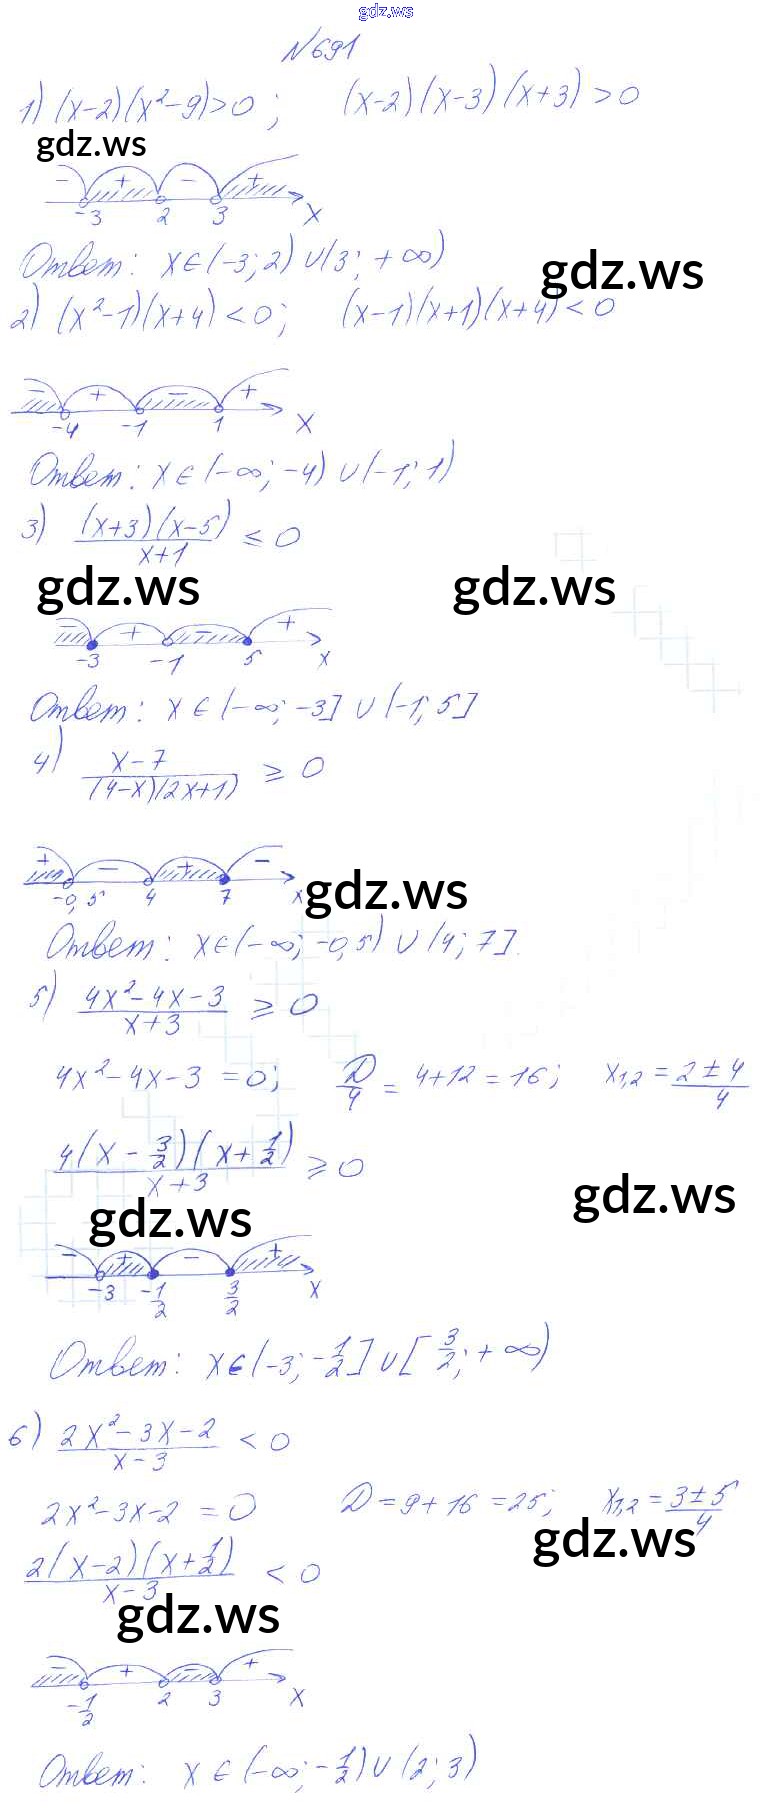 gdz.ws
N 691
1) (x-2)(x²-9)>0; (x-2)(x-3)(x+3)>0
gdz.ws
- + - +
-3 2 3 x
Ответ: x∈(-3; 2)∪(3; +∞)
gdz.ws
2) (x²-1)(x+4)<0; (x-1)(x+1)(x+4)<0
- + - +
-4 -1 1 x
Ответ: x∈(-∞; -4)∪(-1; 1)
3) (x+3)(x-5)/(x+1) ≤ 0
gdz.ws gdz.ws
- + - +
-3 -1 5 x
Ответ: x∈(-∞; -3]∪(-1; 5]
4) (x-7)/((4-x)(2x+1)) ≥ 0
+ - + -
-0,5 4 7 x
gdz.ws
Ответ: x∈(-∞; -0,5)∪(4; 7].
5) (4x²-4x-3)/(x+3) ≥ 0
4x²-4x-3=0; D/4 = 4+12=16; x1,2 = (2±4)/4
4(x-3/2)(x+1/2)/(x+3) ≥ 0
gdz.ws
gdz.ws
- + - +
-3 -1/2 3/2 x
Ответ: x∈(-3; -1/2]∪[3/2; +∞)
6) (2x²-3x-2)/(x-3) < 0
2x²-3x-2=0 D=9+16=25; x1,2 = (3±5)/4
gdz.ws
2(x-2)(x+1/2)/(x-3) < 0
gdz.ws
- + - +
-1/2 2 3 x
Ответ: x∈(-∞; -1/2)∪(2; 3)